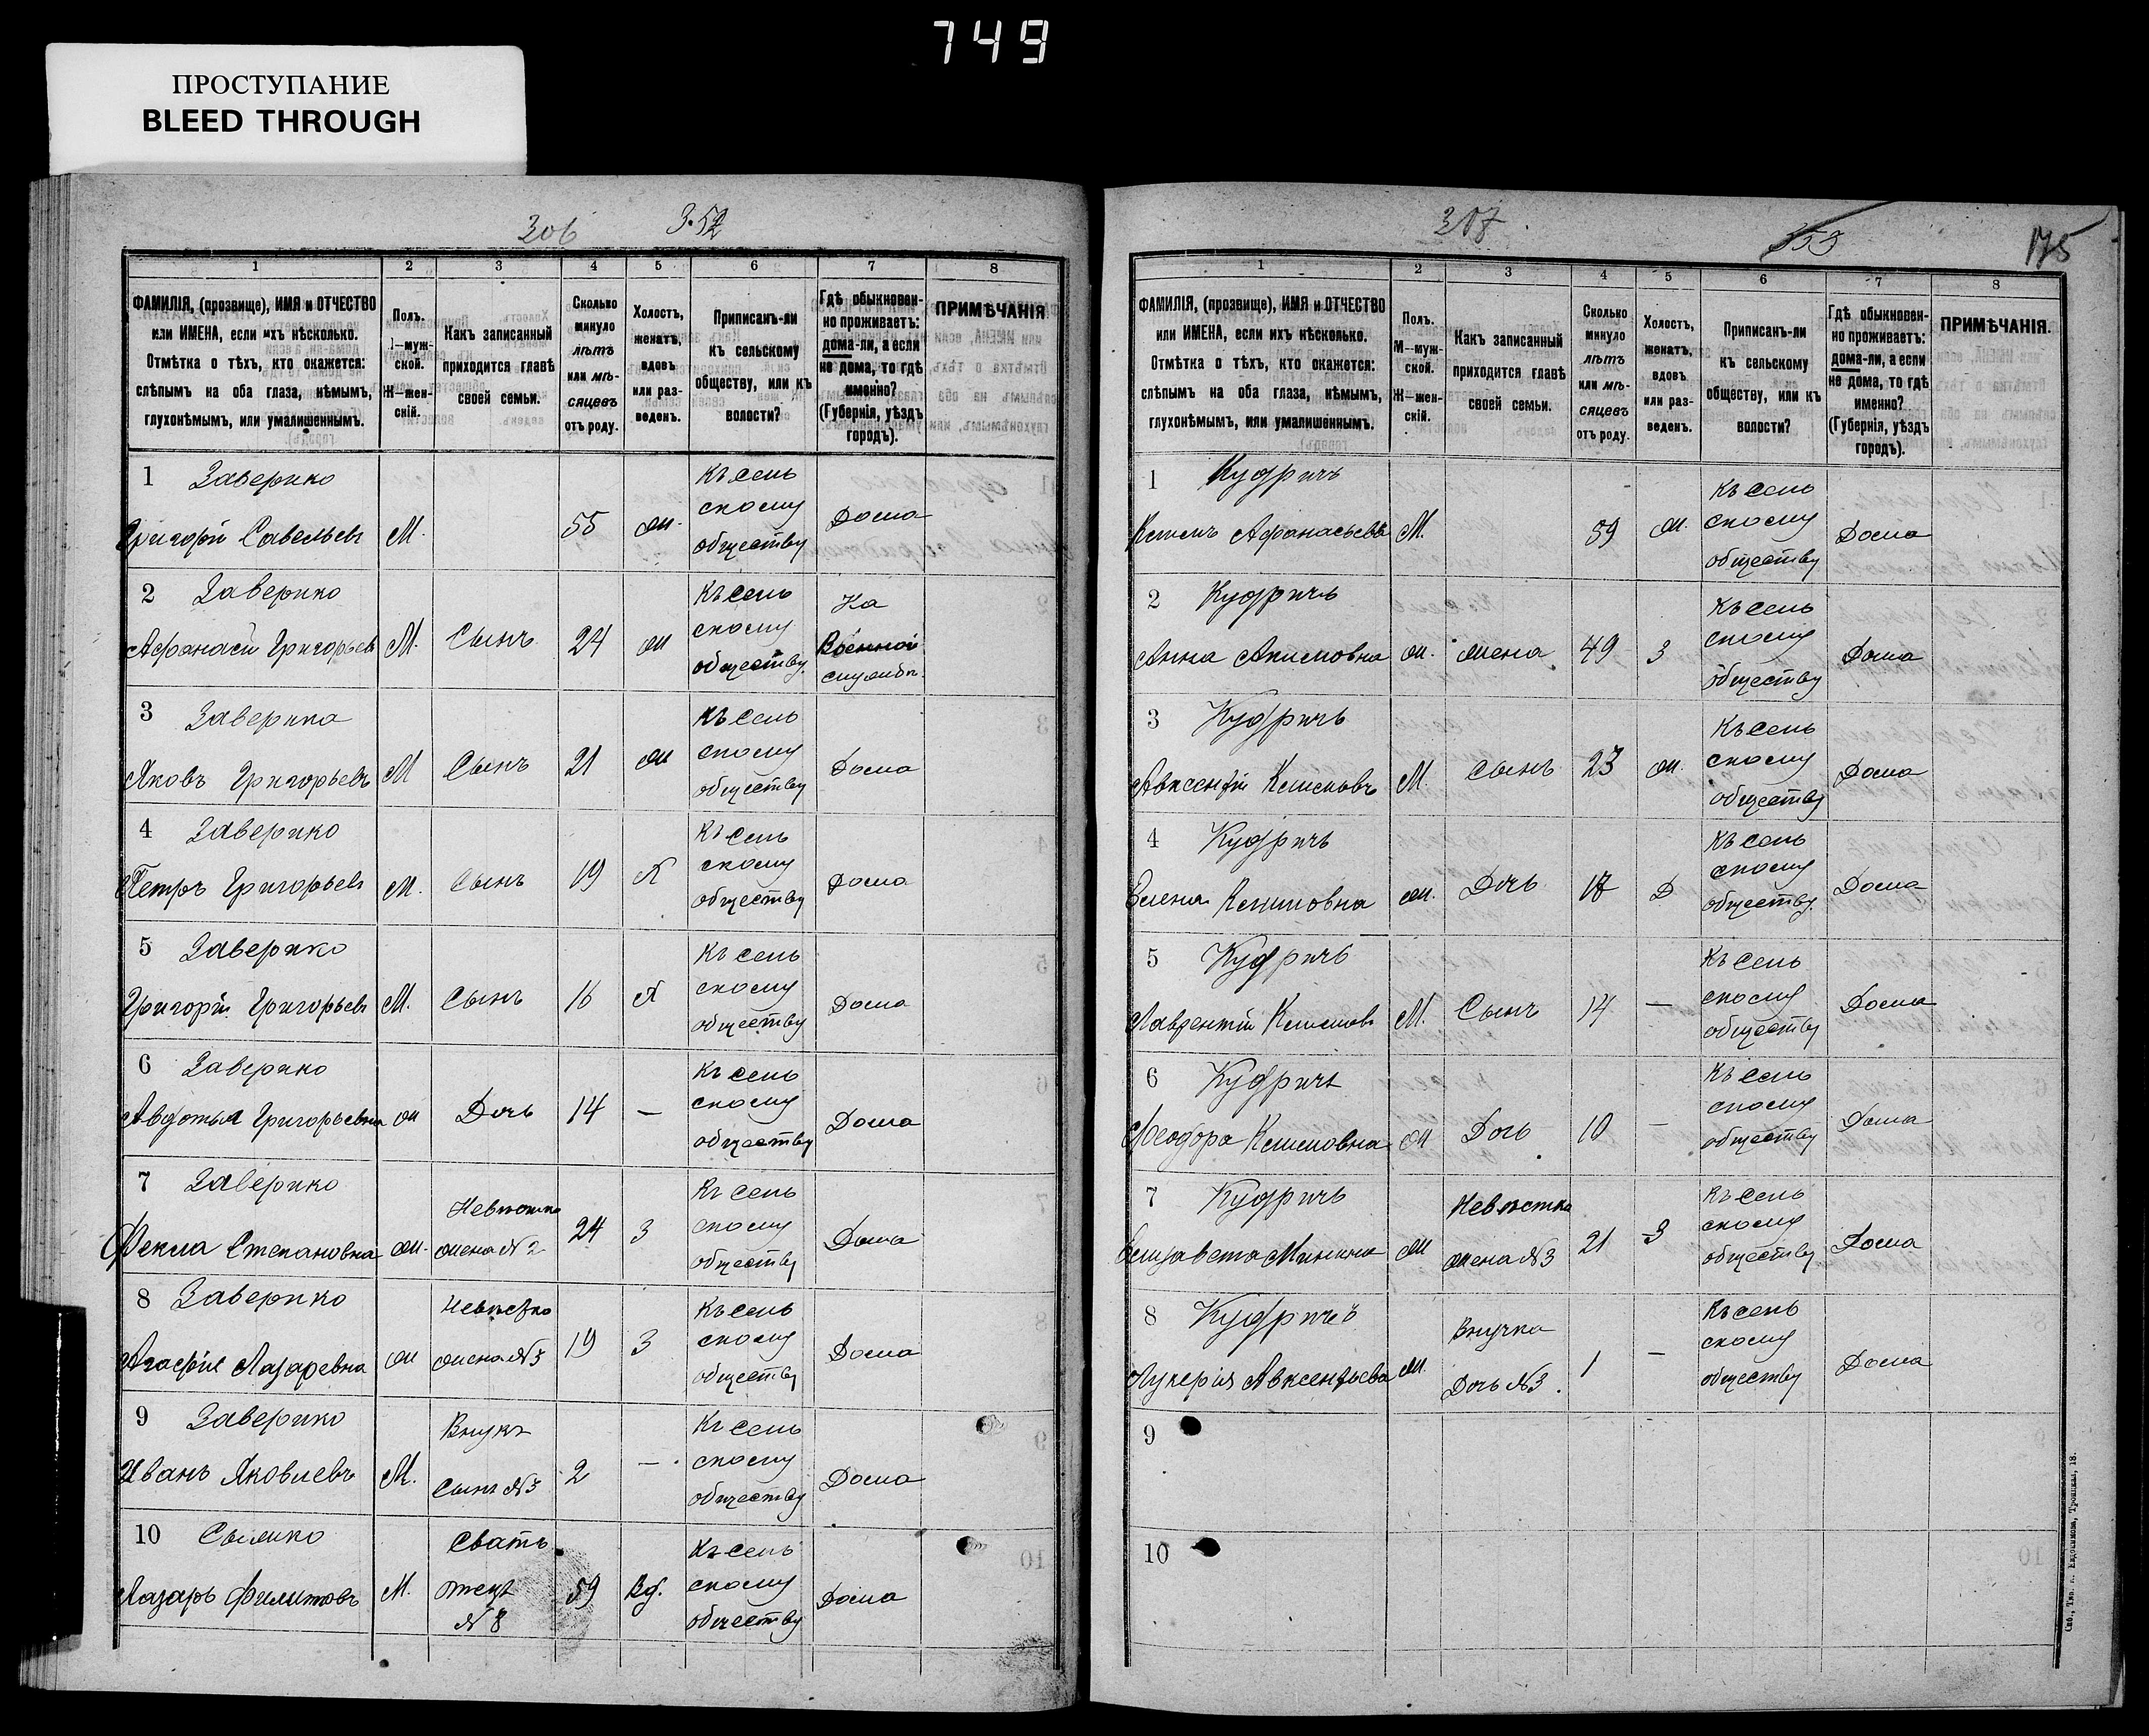 749
ПРОСТУПАНИЕ
BLEED THROUGH
306
352
1 2 3 4 5 6 7 8
ФАМИЛІЯ, (прозвище), ИМЯ и ОТЧЕСТВО или ИМЕНА, если ихъ нѣсколько. Отмѣтка о тѣхъ, кто окажется: слѣпымъ на оба глаза, нѣмымъ, глухонѣмымъ, или умалишеннымъ.
Полъ. М—мужской. Ж—женскій.
Какъ записанный приходится главѣ своей семьи.
Сколько минуло лѣтъ или мѣсяцевъ отъ роду.
Холостъ, женатъ, вдовъ или разведенъ.
Приписанъ-ли къ сельскому обществу, или къ волости?
Гдѣ обыкновенно проживаетъ: дома-ли, а если не дома, то гдѣ именно? (Губернія, уѣздъ городъ).
ПРИМѢЧАНІЯ
1 Заверико Григорій Савельевъ М. 55 ж. Къ сельскому обществу Дома
2 Заверико Афанасій Григорьевъ М. Сынъ 24 ж Къ сельскому обществу. На Военной службѣ
3 Заверика Яковъ Григорьевъ М Сынъ 21 ж Къ сельскому обществу Дома
4 Заверико Петръ Григорьевъ М. Сынъ 19 Х Къ сельскому обществу Дома
5 Заверико Григорій Григорьевъ М. Сынъ 16 Х Къ сельскому обществу Дома
6 Заверико Авдотья Григорьевна ж Дочь 14 — Къ сельскому обществу Дома
7 Заверико Фекла Степановна ж. Невѣстка жена №2 24 З Къ сельскому обществу Дома
8 Заверико Агафія Лазаревна ж Невѣстка жена №3 19 З Къ сельскому обществу Дома
9 Заверико Иванъ Яковлевъ М. Внукъ Сынъ №3 2 — Къ сельскому обществу Дома
10 Лазарь Филиповъ М. Сватъ отецъ №8 59 Вд. Къ сельскому обществу Дома
307
353
175
1 2 3 4 5 6 7 8
ФАМИЛІЯ, (прозвище), ИМЯ и ОТЧЕСТВО или ИМЕНА, если ихъ нѣсколько. Отмѣтка о тѣхъ, кто окажется: слѣпымъ на оба глаза, нѣмымъ, глухонѣмымъ, или умалишеннымъ.
Полъ. М—мужской. Ж—женскій.
Какъ записанный приходится главѣ своей семьи.
Сколько минуло лѣтъ или мѣсяцевъ отъ роду.
Холостъ, женатъ, вдовъ или разведенъ.
Приписанъ-ли къ сельскому обществу, или къ волости?
Гдѣ обыкновенно проживаетъ: дома-ли, а если не дома, то гдѣ именно? (Губернія, уѣздъ городъ).
ПРИМѢЧАНІЯ.
1 Кудричъ Климъ Афанасьевъ М. 59 ж. Къ сельскому обществу Дома
2 Кудричъ Анна Акимовна ж. жена 49 З Къ сельскому обществу Дома
3 Кудричъ Авксентій Климовъ М. Сынъ 23 ж. Къ сельскому обществу Дома
4 Кудричъ Елена Климовна ж. Дочь 17 Д Къ сельскому обществу. Дома
5 Кудричъ Лаврентій Климовъ М. Сынъ 14 — Къ сельскому обществу Дома
6 Кудричъ Феодора Климовна ж Дочь 10 — Къ сельскому обществу Дома
7 Кудричъ Елизавета Минична ж Невѣстка жена №3 21 З Къ сельскому обществу Дома
8 Кудричъ Лукерія Авксентьева ж. Внучка Дочь №3. 1 — Къ сельскому обществу Дома
9
10